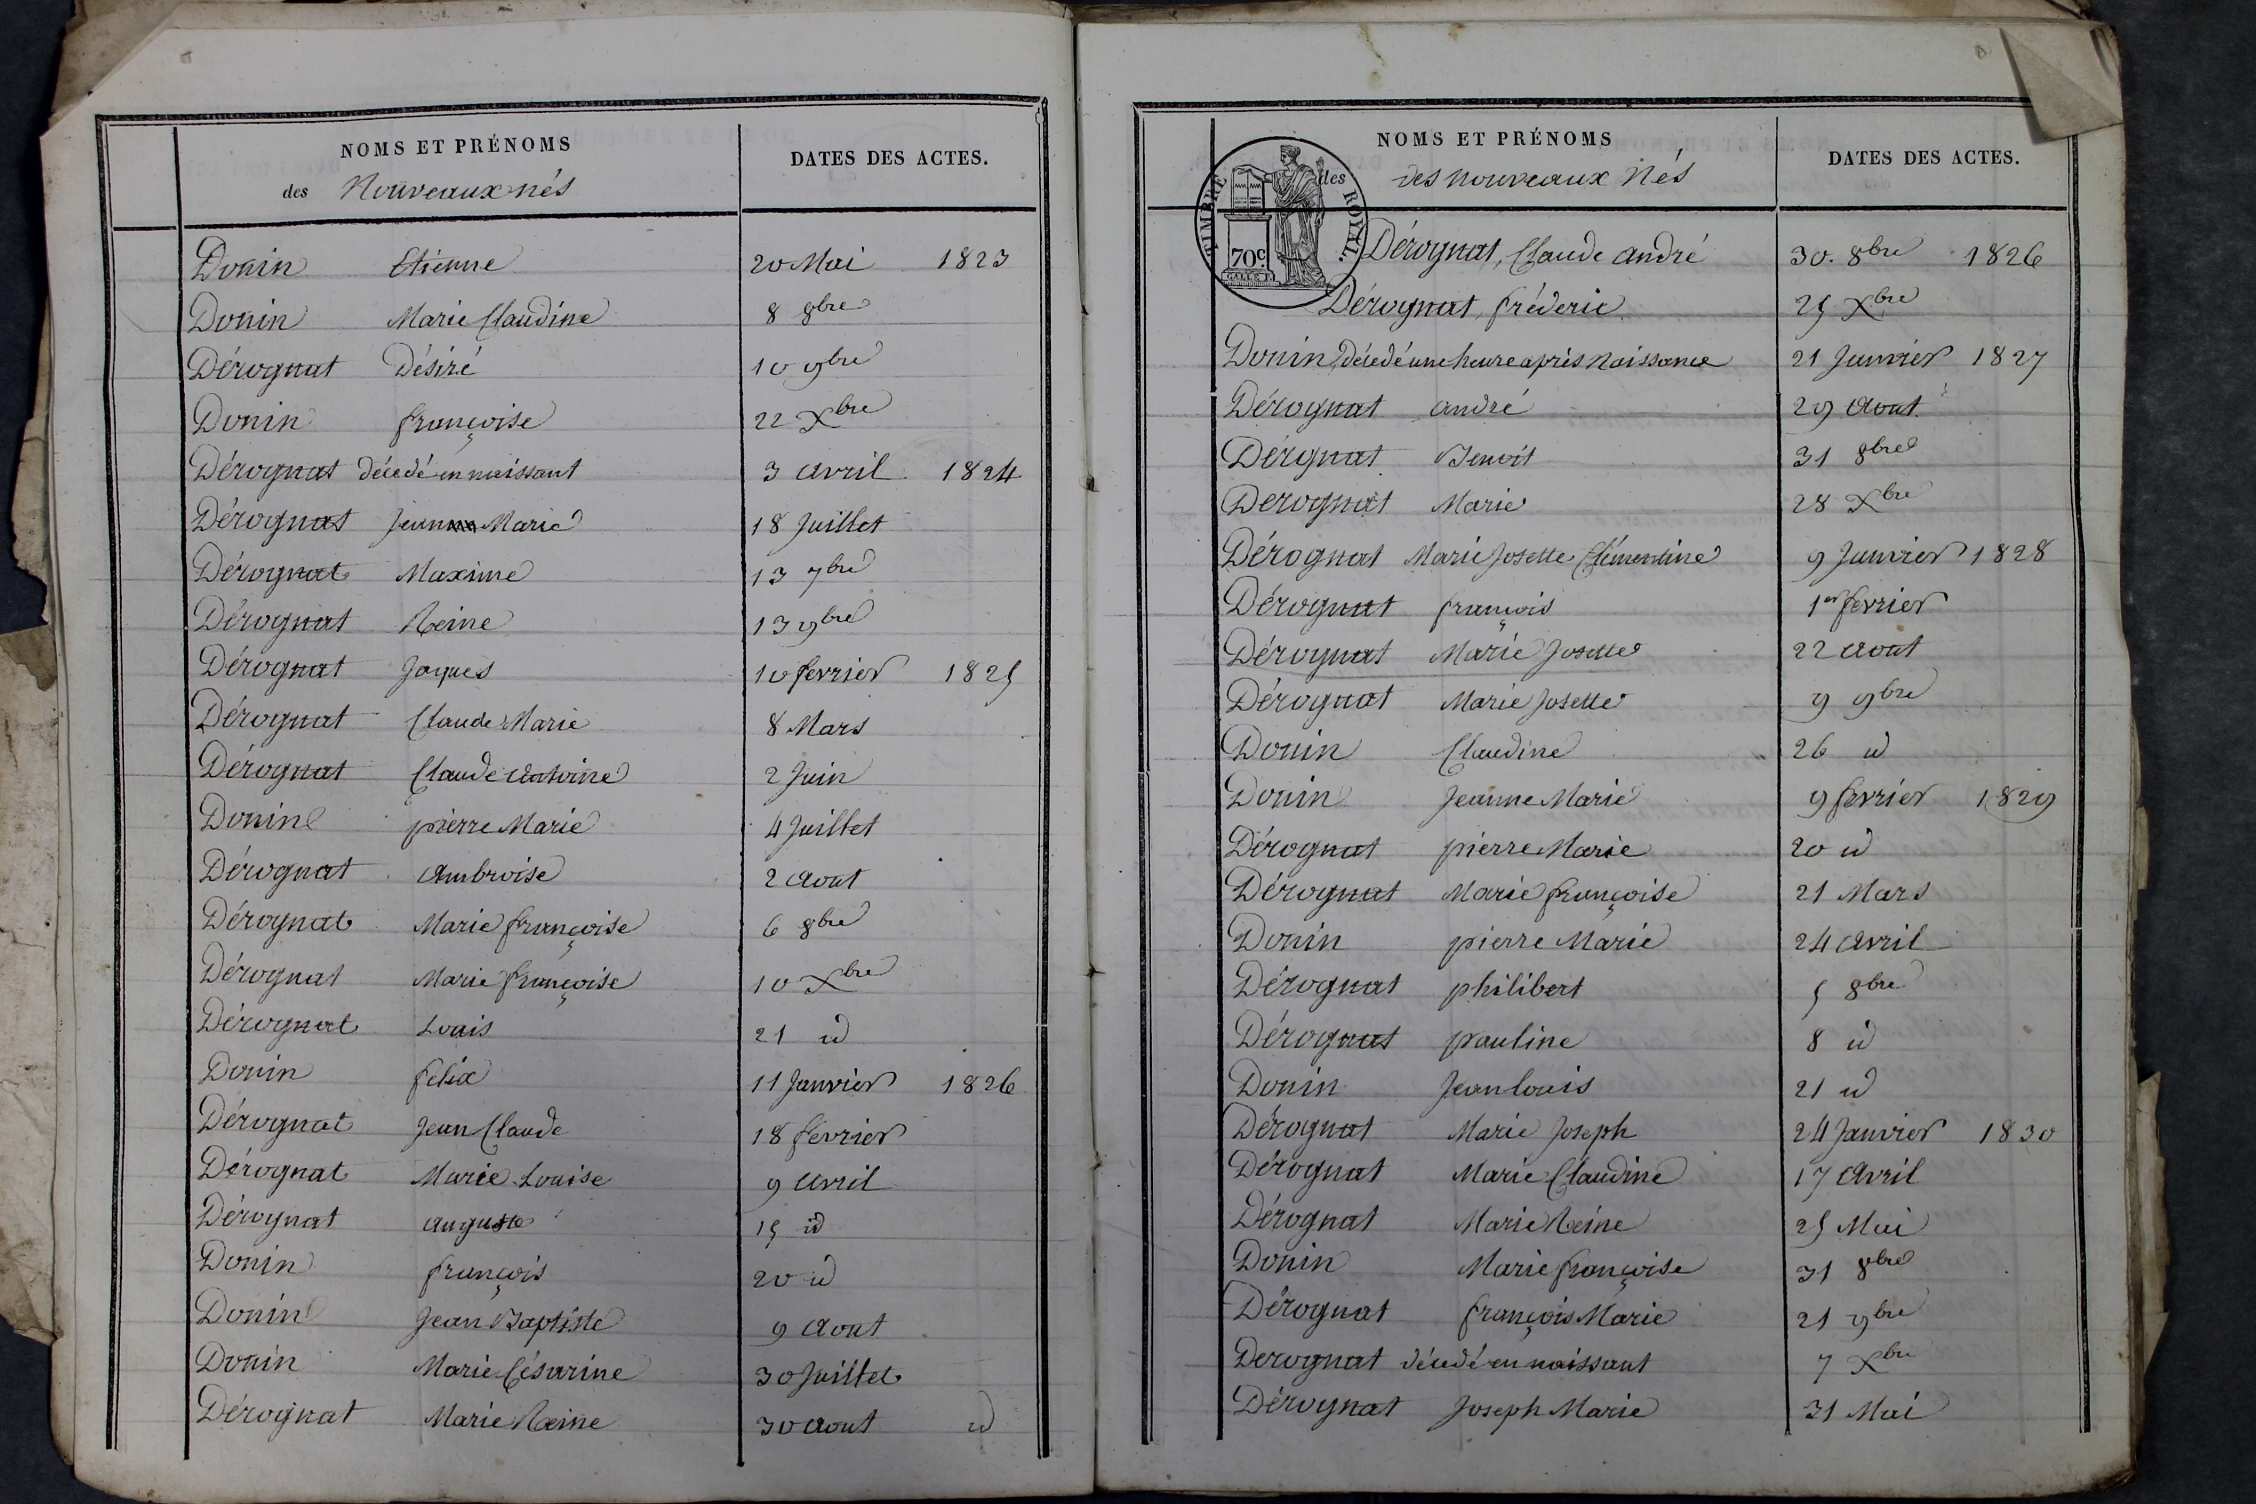 NOMS ET PRÉNOMS
des Nouveaux nés
DATES DES ACTES.
Donin Etienne 20 Mai 1823
Donin Marie Claudine 8 8bre
Dérognat Désiré 10 9bre
Donin françoise 22 Xbre
Dérognat décedé en naissant 3 avril 1824
Dérognat Jean Marie 18 Juillet
Dérognat Maxime 13 7bre
Dérognat Reine 13 9bre
Dérognat Jaques 10 fevrier 1825
Dérognat Claude Marie 8 Mars
Dérognat Claude antoine 2 Juin
Donin pierre Marie 4 Juillet
Dérognat Ambroise 2 aout
Dérognat Marie françoise 6 8bre
Dérognat Marie françoise 10 Xbre
Dérognat Louis 21 id
Donin felix 11 Janvier 1826
Dérognat Jean Claude 18 fevrier
Dérognat Marie Louise 9 avril
Dérognat auguste 15 id
Donin françois 20 id
Donin Jean Baptiste 9 aout
Donin Marie Césarine 30 Juillet
Dérognat Marie Reine 30 aout id
NOMS ET PRÉNOMS
des des nouveaux Nés
DATES DES ACTES.
TIMBRE ROYAL.
70c.
Dérognat, Claude andré 30. 8bre 1826
Dérognat, fréderic 25 Xbre
Donin, décedé une heure après Naissance 21 Janvier 1827
Dérognat andré 29 aout
Dérignat Benoit 31 8bre
Derognat Marie 28 Xbre
Dérognat Marie Josette Clémentine 9 Janvier 1828
Dérognat françois 1er fevrier
Dérognat Marie Josette 22 aout
Dérognat Marie Josette 9 9bre
Donin Claudine 26 id
Donin Jeanne Marie 9 fevrier 1829
Dérognat pierre Marie 20 id
Dérognat Marie françoise 21 Mars
Donin pierre Marie 24 avril
Dérognat philibert 5 8bre
Dérognat pauline 8 id
Donin Jean Louis 21 id
Dérognat Marie Joseph 24 Janvier 1830
Dérognat Marie Claudine 17 avril
Dérognat Marie Reine 25 Mai
Donin Marie françoise 31 8bre
Dérognat françois Marie 21 9bre
Derognat décedé en naissant 7 Xbre
Dérognat Joseph Marie 31 Mai